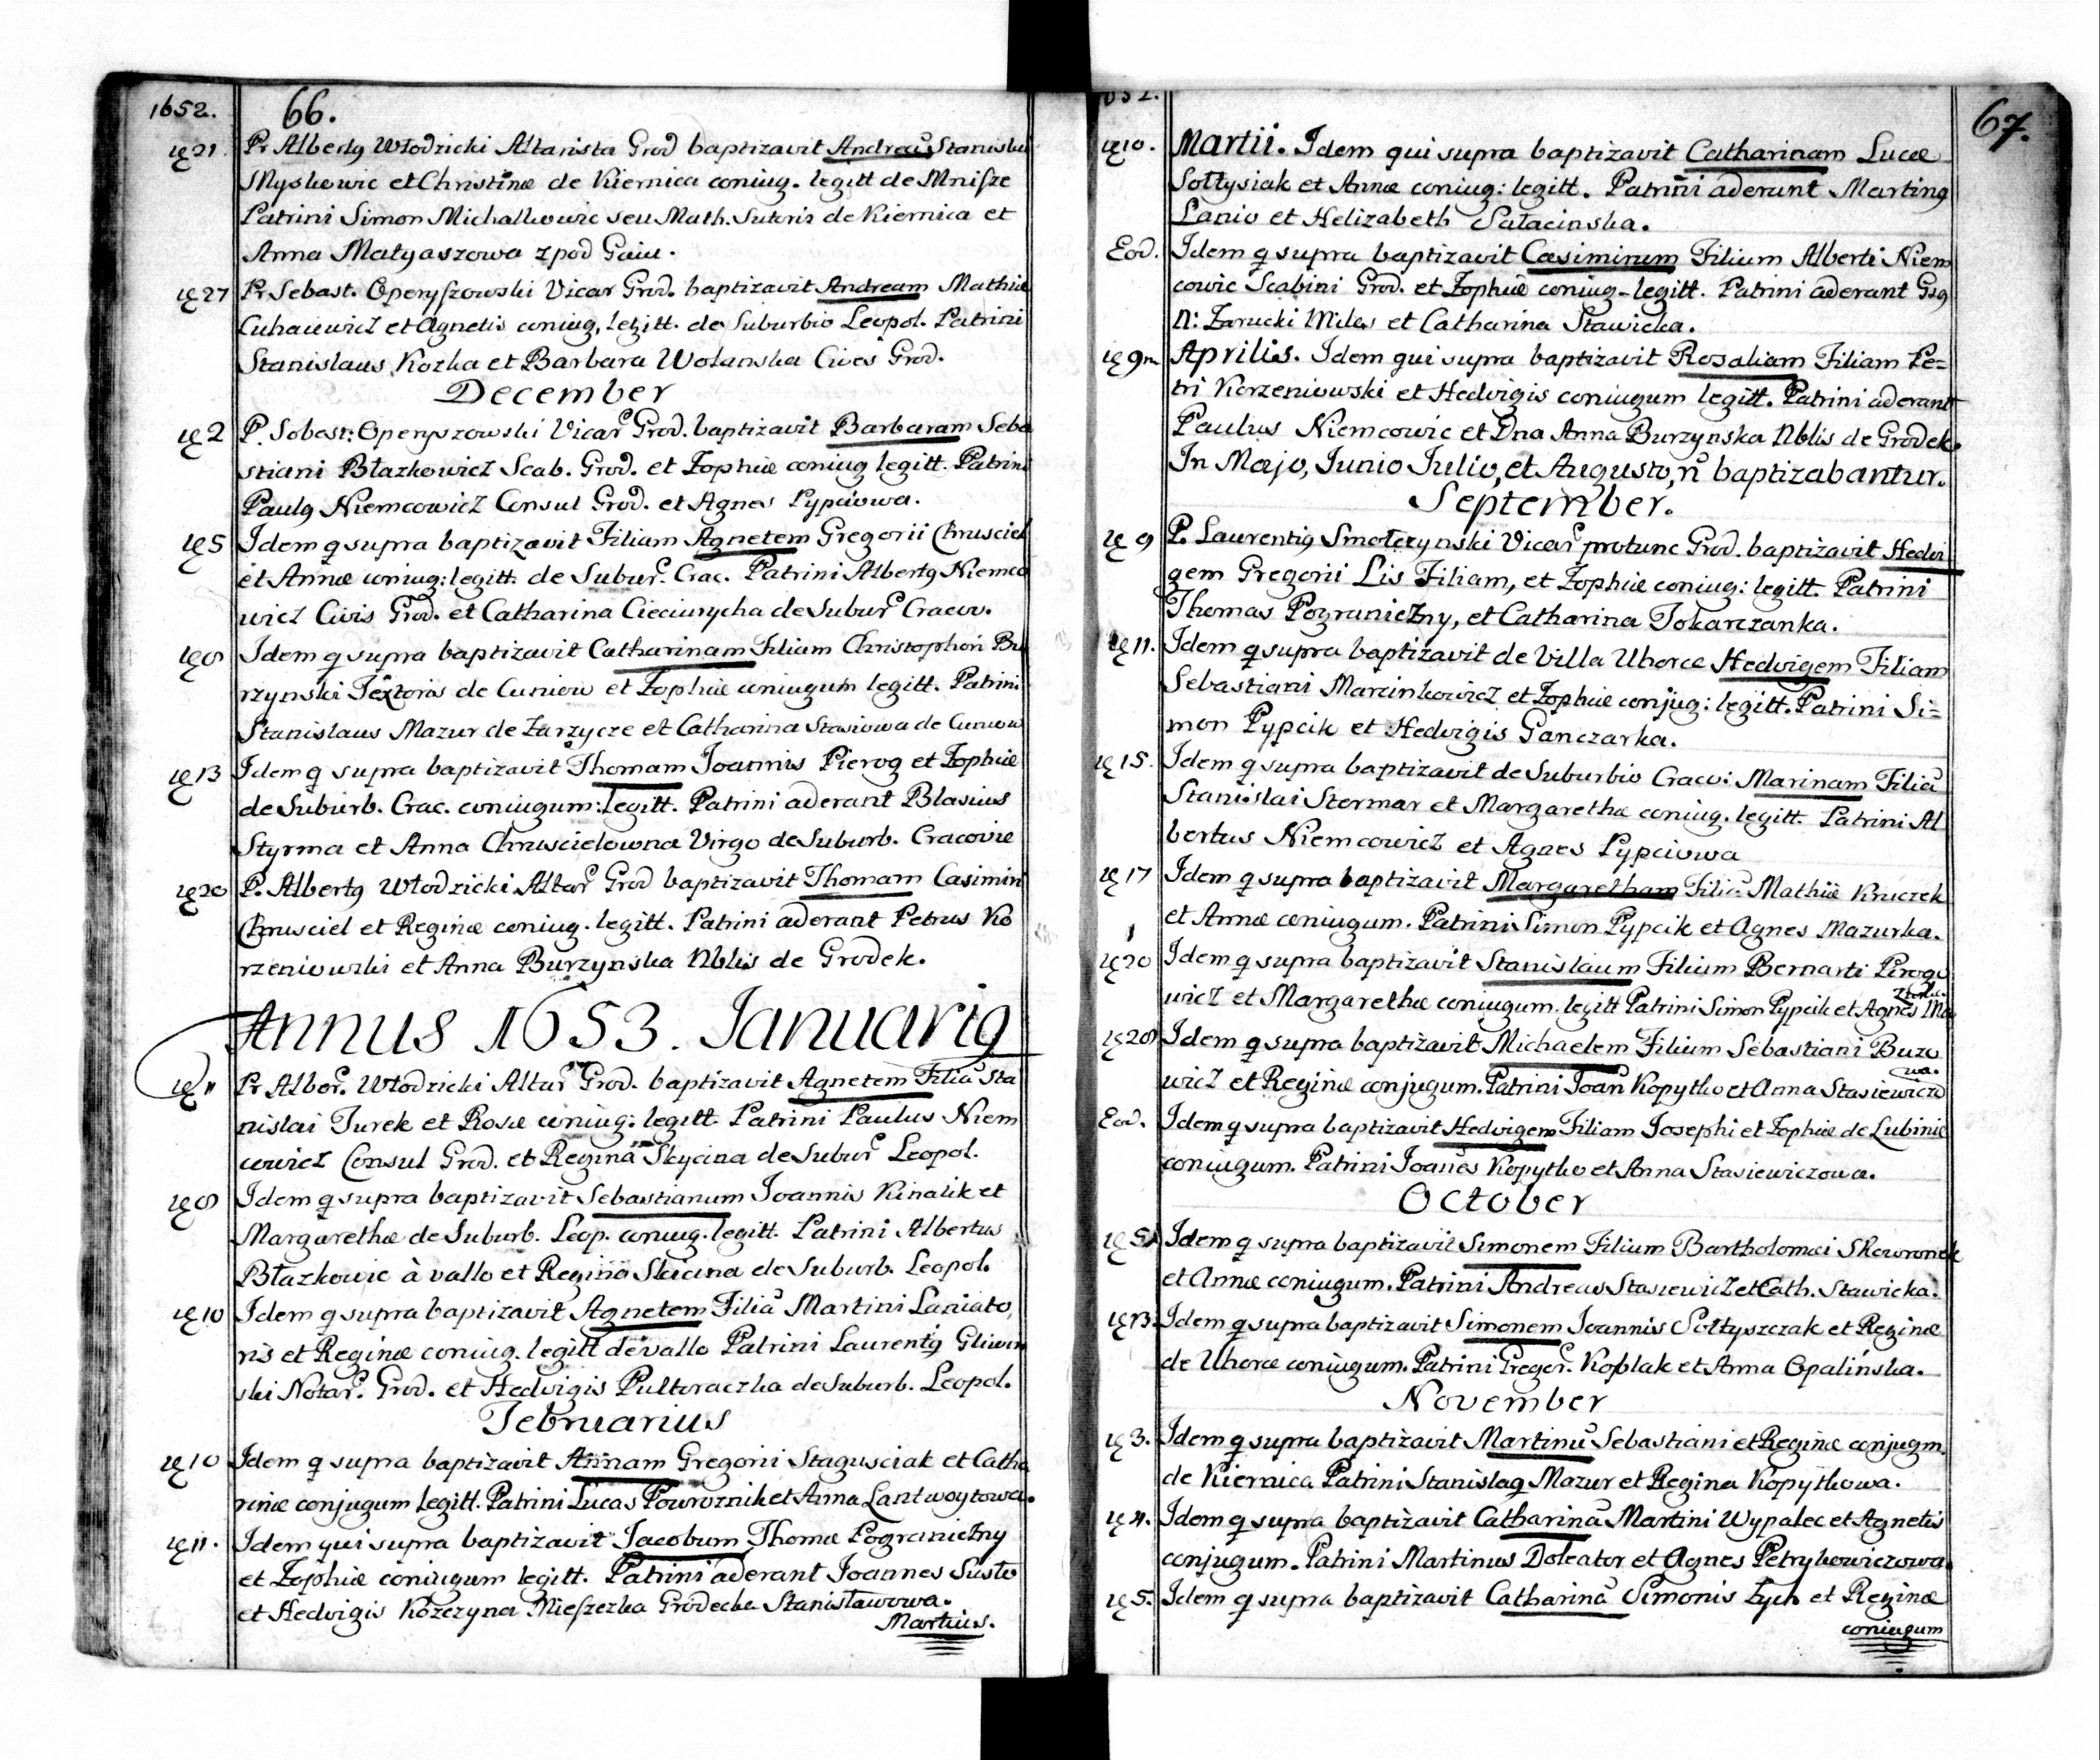 1652. 66.
21. Pr Albertꝯ Włodzicki Altarista Grod baptizavit Andreã Stanislai
Myskowic et Christinæ de Kiernica coniug. legitt de Mnisze
Patrini Simon Michalkowic seu Math. Sutoris de Kiernica et
Anna Matyaszowa z pod Gaiu.
27 Pr Sebast. Operyszowski Vicar Grod. baptizavit Andream Mathiæ
Cuhaiewicz et Agnetis coniug. legitt. de Suburbio Leopol. Patrini
Stanislaus Kozka et Barbara Wolanska Cives Grod.
December
2 P. Sebast: Operyszowski Vicar Grod. baptizavit Barbaram Seba
stiani Błazkowicz Scab. Grod. et Zophiæ coniug legitt. Patrini
Paulꝯ Niemcowicz Consul Grod. et Agnes Pypciowa.
5 Idem q supra baptizavit Filiam Agnetem Gregorii Chrusciel
et Annæ coniug: legitt. de Subur. Crac. Patrini Albertꝯ Niemco
wicz Civis Grod. et Catharina Cieciurycha de Subur Cracov.
8 Idem q supra baptizavit Catharinam Filiam Christophori Bu
rzynski Textoris de Cuniow et Zophiæ coniugum legitt. Patrini
Stanislaus Mazur de Zarzycze et Catharina Stasiowa de Cuniow
13 Idem q supra baptizavit Thomam Joannis Pierog et Zophiæ
de Suburb. Crac. coniugum: legitt. Patrini aderant Blasius
Styrma et Anna Chruscielowna Virgo de Suburb. Cracovie
20 P. Albertꝯ Włodzicki Altar Grod baptizavit Thomam Casimiri
Chrusciel et Reginæ coniug. legitt. Patrini aderant Petrus Ko
rzeniowski et Anna Burzynska Nblis de Grodek.
Annus 1653. Januariꝯ
Pr Alber. Włodzicki Altar Grod. baptizavit Agnetem Filiã Sta
nislai Turek et Rosæ coniug: legitt. Patrini Paulus Niem
cowicz Consul Grod. et Regina Skycina de Subur Leopol.
8 Idem q supra baptizavit Sebastianum Joannis Kinalik et
Margarethæ de Suburb. Leop. coniug. legitt. Patrini Albertus
Błazkowic à vallo et Regina Skicina de Suburb. Leopol.
10 Idem q supra baptizavit Agnetem Filiã Martini Laniato,
ris et Reginæ coniug. legitt de vallo Patrini Laurentꝯ Gliwin
ski Notar. Grod. et Hedvigis Pultoraczka de Suburb. Leopol.
Februarius
10 Idem q supra baptizavit Annam Gregorii Stagusciak et Catha
rinæ conjugum legitt. Patrini Lucas Powroznik et Anna Lantwoytowa.
11. Idem qui supra baptizavit Jacobum Thomæ Pograniczny
et Zophiæ coniugum legitt. Patrini aderant Joannes Susło
et Hedvigis Kozczyna Mieszczka Grodecka Stanisławowa.
Martius.
67.
10. Martii. Idem qui supra baptizavit Catharinam Lucæ
Sołtysiak et Annæ coniug: legitt. Patrini aderant Martinꝯ
Lanio et Helizabeth Sałacinska.
Eod. Idem q supra baptizavit Casimirum Filium Alberti Niem
cowic Scabini Grod. et Zophiæ coniug-legitt. Patrini aderant Gsꝯ
n: Zarucki Miles et Catharina Stawicka.
9 Aprilis. Idem qui supra baptizavit Rosaliam Filiam Pe=
tri Korzeniowski et Hedvigis coniugum legitt. Patrini aderant
Paulus Niemcowic et Dna Anna Burzynska Nblis de Grodek.
In Majo, Junio Julio, et Augusto, n̄ baptizabantur.
September.
9 P. Laurentiꝯ Smołczynski Vicar protunc Grod. baptizavit Hedvi
gem Gregorii Lis Filiam, et Zophiæ coniug: legitt. Patrini
Thomas Pograniczny, et Catharina Tokarczanka.
11. Idem q supra baptizavit de Villa Uhorce Hedvigem Filiam
Sebastiani Marcinkowicz et Zophiæ conjug: legitt. Patrini Si=
mon Pypcik et Hedvigis Ganczarka.
15. Idem q supra baptizavit de Suburbio Craco: Marinam Filiã
Stanislai Stermar et Margarethæ coniug. legitt. Patrini Al
bertus Niemcowicz et Agnes Pypciowa
17 Idem q supra baptizavit Margaretham Filiã Mathiæ Kruczek
et Annæ coniugum. Patrini Simon Pypcik et Agnes Mazurka.
20 Idem q supra baptizavit Stanislaum Filium Bernarti Pirogo
wicz et Margarethæ coniugum. legitt Patrini Simon Pypcik et Agnes Ma
28 Idem q supra baptizavit Michaelem Filium Sebastiani Buzo
wicz et Reginæ conjugum. Patrini Joan Kopytko et Anna Stasiewiczo
wa.
Eod. Idem q supra baptizavit Hedvigem Filiam Josephi et Zophiæ de Lubinie
coniugum. Patrini Joanēs Kopytko et Anna Stasiewiczowa.
October
5 Idem q supra baptizavit Simonem Filium Bartholomæi Skowronek
et Annæ coniugum. Patrini Andreas Stasiewicz et Cath. Stawicka.
13. Idem q supra baptizavit Simonem Joannis Sołtyszczak et Reginæ
de Uhorce coniugum. Patrini Gregor. Koblak et Anna Opalińska.
November
3. Idem q supra baptizavit Martinũ Sebastiani et Reginæ conjugm.
de Kiernica Patrini Stanislaꝯ Mazur et Regina Kopytkowa.
4. Idem q supra baptizavit Catharinã Martini Wypalec et Agnetis
conjugum. Patrini Martinus Doleator et Agnes Petrykowiczowa.
5. Idem q supra baptizavit Catharinã Simonis Zych et Reginæ
coniugum